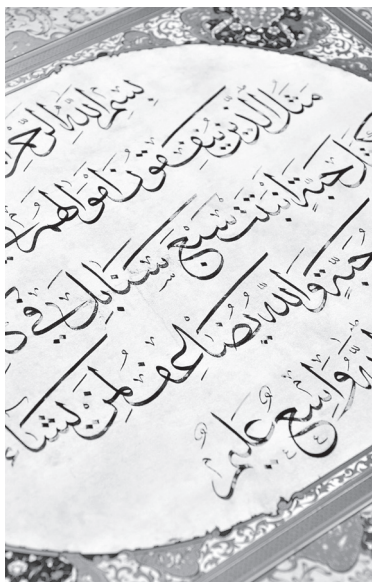 بِسْمِ اللَّهِ
مَثَلُ الَّذِينَ يُنفِقُونَ أَمْوَالَهُمْ
حَبَّةٍ أَنبَتَتْ سَبْعَ سَنَابِلَ فِي
حَبَّةٍ وَاللَّهُ يُضَاعِفُ لِمَن يَشَاءُ
وَاسِعٌ عَلِيمٌ